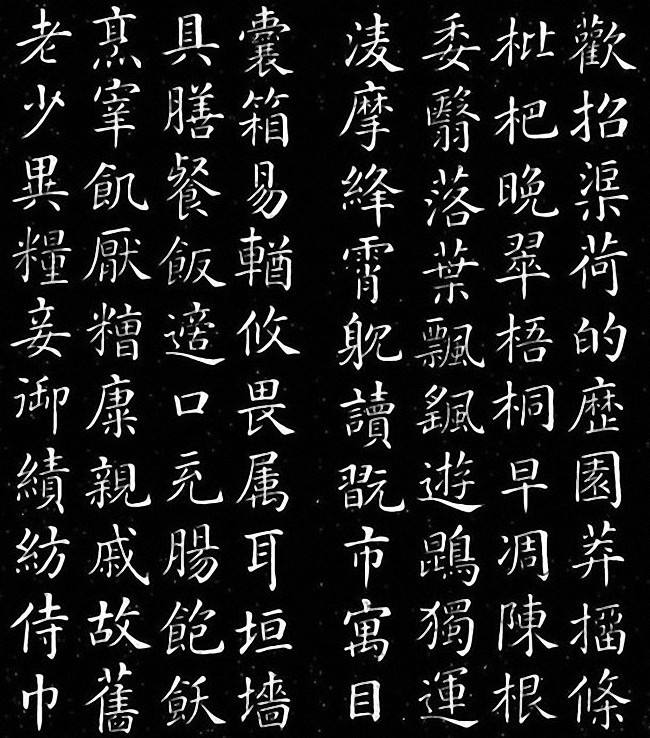 歡招渠荷的歷園莽㩅條
枇杷晚翠梧桐早凋陳根
委翳落葉飄颻遊鵾獨運
淩摩絳霄躭讀翫市寓目
囊箱易輶攸畏属耳垣墻
具膳餐飯適口充腸飽飫
烹宰飢厭糟糠親戚故舊
老少異糧妾御績紡侍巾